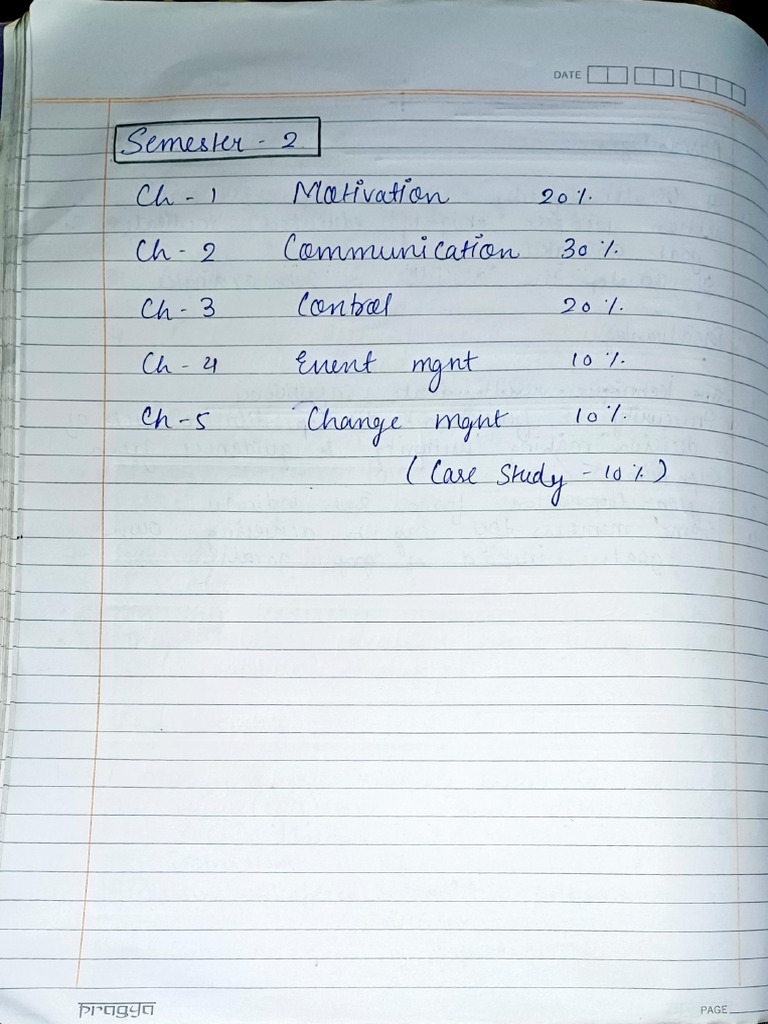 DATE
Semester - 2
Ch - 1 Motivation 20%
Ch - 2 Communication 30%
Ch - 3 Control 20%
Ch - 4 Event mgnt 10%
Ch - 5 Change mgnt 10%
(Case Study - 10%)
pragya
PAGE